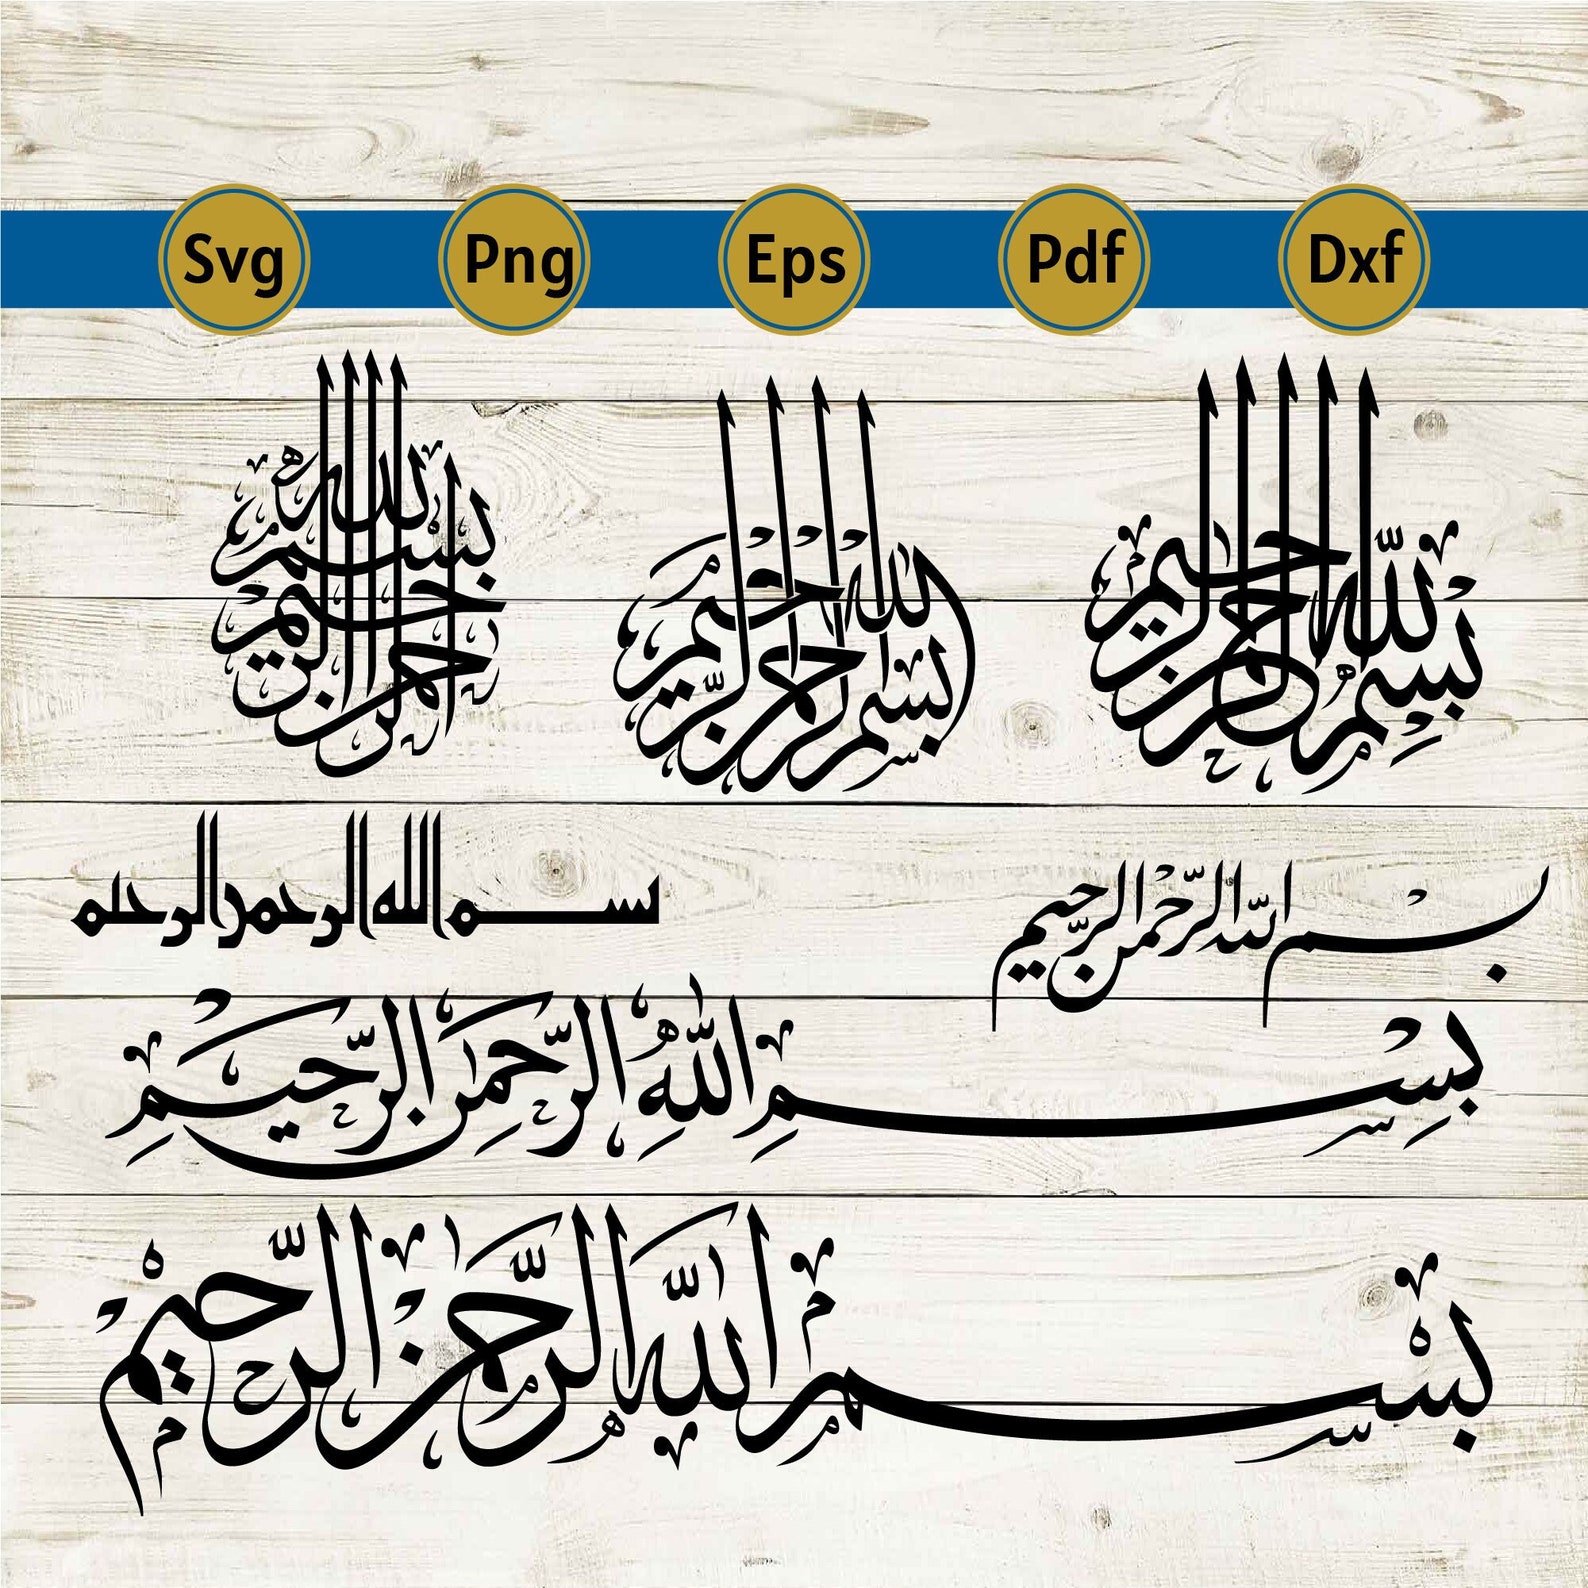 Svg Png Eps Pdf Dxf
بسم الله الرحمن الرحيم
بسم الله الرحمن الرحيم
بسم الله الرحمن الرحيم
بسم الله الرحمن الرحيم
بسم الله الرحمن الرحيم
بِسْمِ اللَّهِ الرَّحْمَٰنِ الرَّحِيمِ
بسم الله الرحمن الرحيم